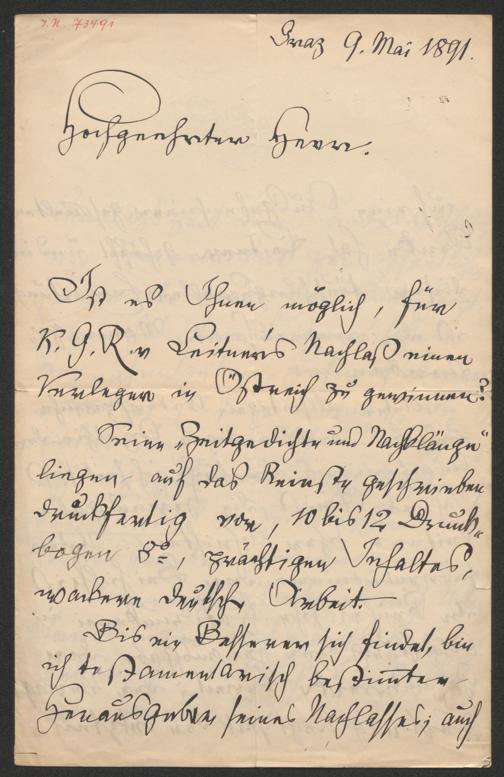 I.N. 73491
Graz 9. Mai 1891.
Hochgeehrter Herr.
Ist es Ihnen möglich, für
K. G. R. v Leitner's Nachlaß einen
Verleger in Östreich zu gewinnen?
Seine „Zeitgedichte und Nachklänge"
liegen auf das Reinste geschrieben
druckfertig vor, 10 bis 12 Druck-
bogen 8º, prächtigen Inhaltes,
wackere deutsche Arbeit.
Bis ein Besserer sich findet, bin
ich testamentarisch bestimmter
Herausgeber seines Nachlasses; auch